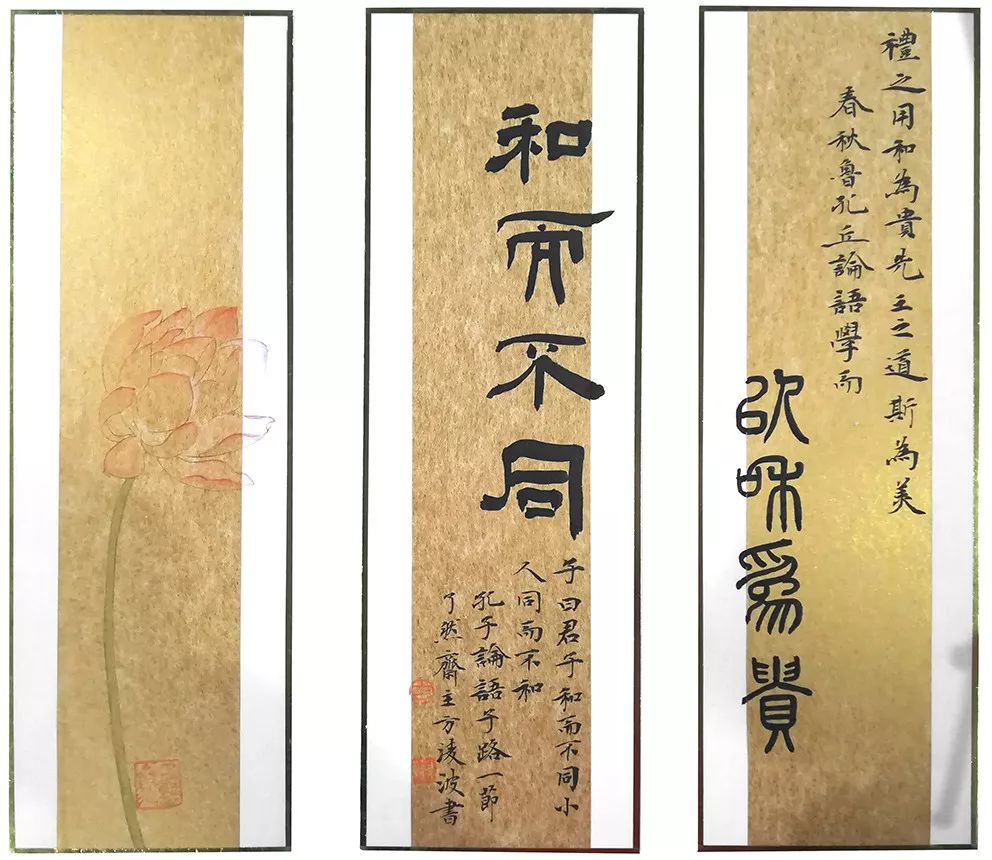 禮之用和為貴先王之道斯為美
春秋魯孔丘論語學而
以和爲貴
和而不同
子曰君子和而不同小
人同而不和
孔子論語子路一節
了然齋主方淩波書